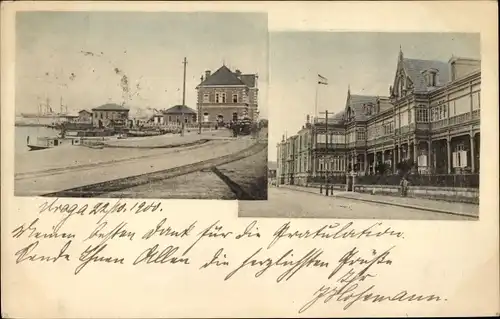 Uraga 22/10. 1900.
Meinen besten Dank für die Gratulation.
Sende Ihnen Allen die herzlichsten Grüße
Ihr
Hosemann.